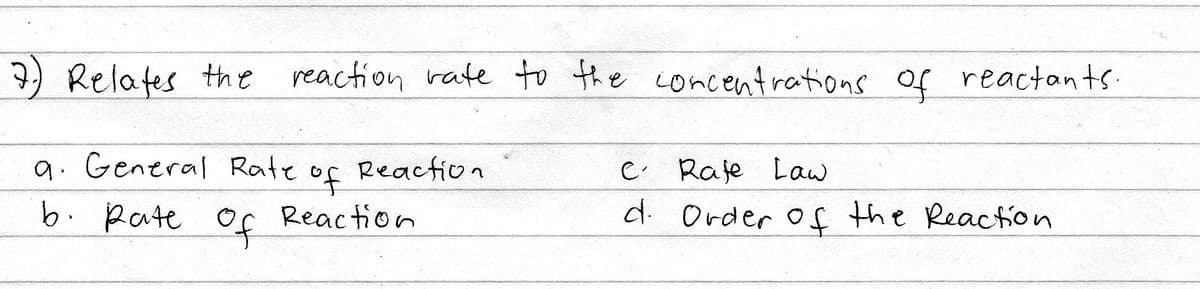 7.) Relates the reaction rate to the concentrations of reactants.
a. General Rate of Reaction
b. Rate of Reaction
c. Rate Law
d. Order of the Reaction